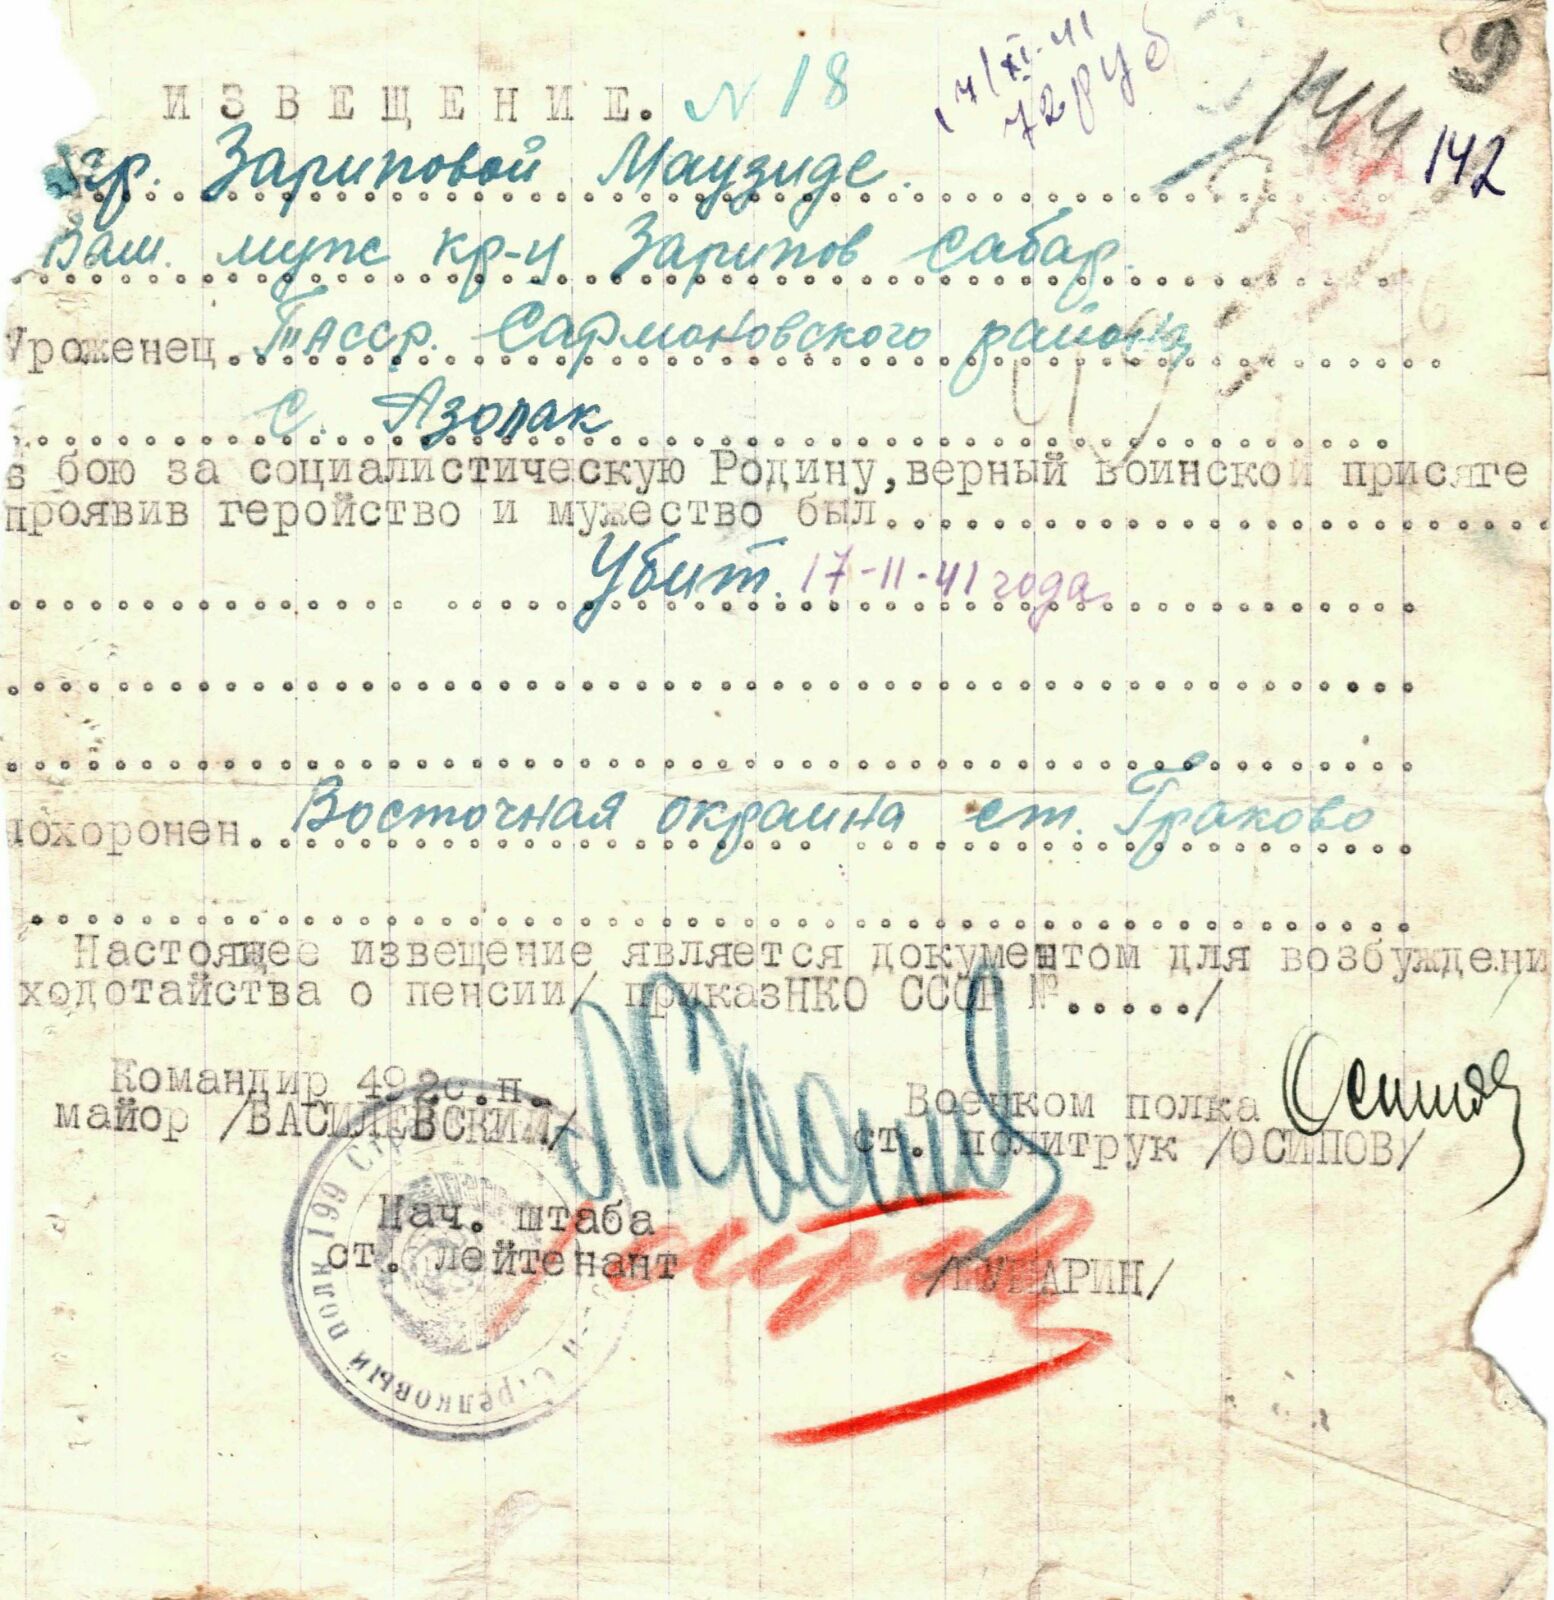 ИЗВЕЩЕНИЕ. N 18
17/XI-41
72 руб
9
144
142
гр. Зариповой Маузиде.
Ваш. муж кр-ц Зарипов Сабар.
Уроженец. ТАССР. Сармоновского района
с. Азолак
в бою за социалистическую Родину, верный воинской присяге
проявив геройство и мужество был
Убит. 17-11-41 года
похоронен. Восточная окраина ст. Граково
Настоящее извещение является документом для возбуждени
ходотайства о пенсии/ приказНКО СССР №...../
Командир 492с.п.
майор /ВАСИЛЕВСКИЙ/
Военком полка Осипов
ст. политрук /ОСИПОВ/
Нач. штаба
ст. лейтенант
АРИН/
Стрелковый полк 199 Ст